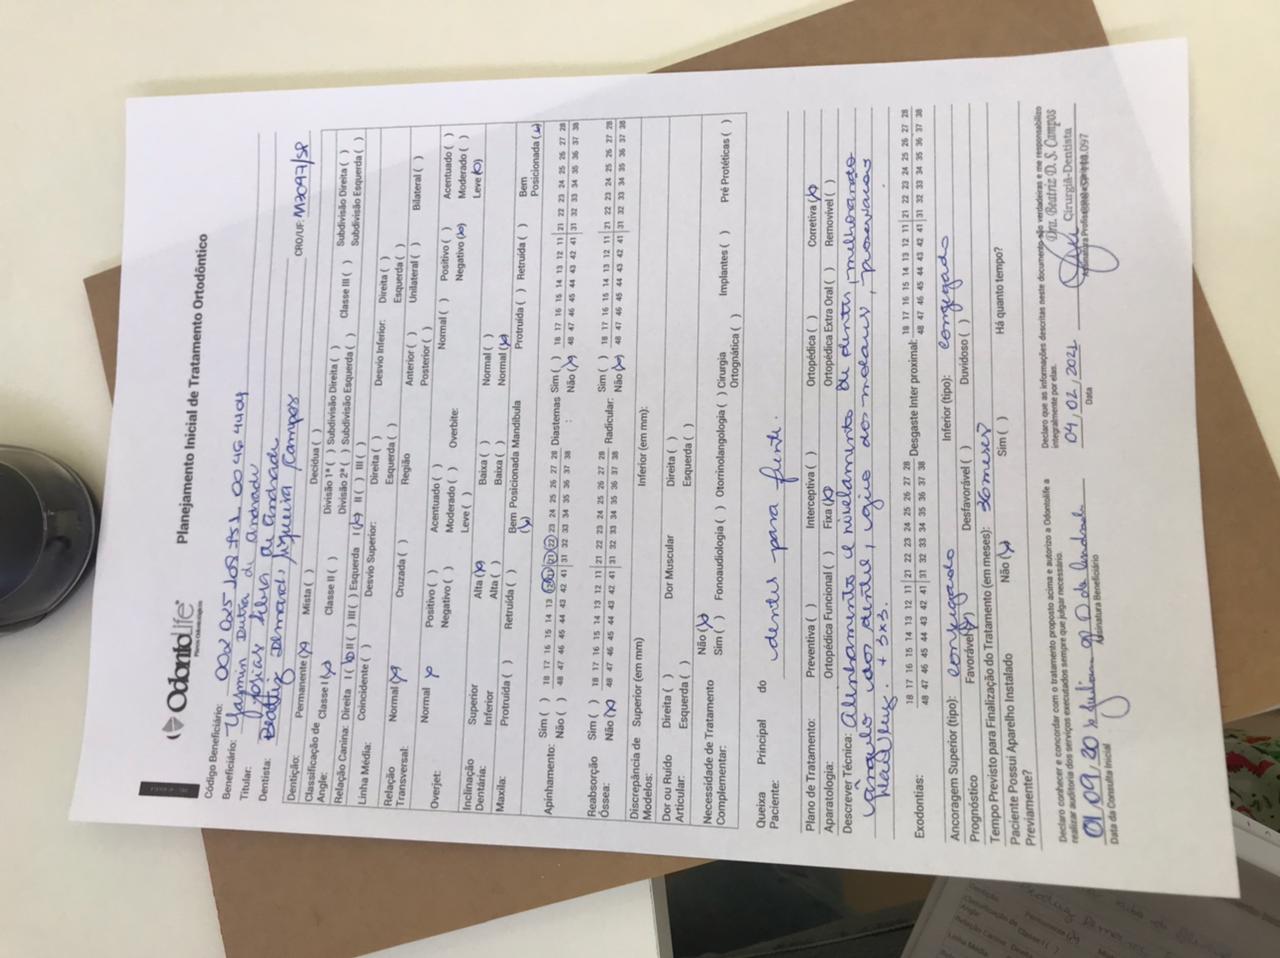 Odontolife
Planos Odontológicos
Planejamento Inicial de Tratamento Ortodôntico
Código Beneficiário: 002 025
Beneficiário: Yasmin Dutra de Andrade
Titular: Josias Silva de Andrade
Dentista: Beatriz Demarchi Siqueira Campos CRO/UF:
Dentição: Permanente (x) Mista ( ) Decídua ( )
Classificação de Angle: Classe I (x) Classe II ( ) Divisão 1ª ( ) Subdivisão Direita ( ) Divisão 2ª ( ) Subdivisão Esquerda ( ) Classe III ( ) Subdivisão Direita ( ) Subdivisão Esquerda ( )
Relação Canina: Direita I (x) II ( ) III ( ) Esquerda I (x) II ( ) III ( )
Linha Média: Coincidente ( ) Desvio Superior: Direita ( ) Esquerda ( ) Desvio Inferior: Direita ( ) Esquerda ( )
Relação Transversal: Normal (x) Cruzada ( ) Região Anterior ( ) Posterior ( ) Unilateral ( ) Bilateral ( )
Overjet: Normal x Positivo ( ) Negativo ( ) Acentuado ( ) Moderado ( ) Leve ( ) Overbite: Normal ( ) Positivo ( ) Negativo (x) Acentuado ( ) Moderado ( ) Leve (x)
Inclinação Dentária: Superior Alta (x) Baixa ( ) Normal ( )
Inferior Alta ( ) Baixa ( ) Normal (x)
Maxila: Protruída ( ) Retruída ( ) Bem Posicionada (x) Mandíbula Protruída ( ) Retruída ( ) Bem Posicionada (x)
Apinhamento: Sim ( ) 18 17 16 15 14 13 12 11 | 21 22 23 24 25 26 27 28 Diastemas : Sim ( ) 18 17 16 15 14 13 12 11 | 21 22 23 24 25 26 27 28
Não ( ) 48 47 46 45 44 43 42 41 | 31 32 33 34 35 36 37 38 Não (x) 48 47 46 45 44 43 42 41 | 31 32 33 34 35 36 37 38
Reabsorção Óssea: Sim ( ) 18 17 16 15 14 13 12 11 | 21 22 23 24 25 26 27 28 Radicular: Sim ( ) 18 17 16 15 14 13 12 11 | 21 22 23 24 25 26 27 28
Não (x) 48 47 46 45 44 43 42 41 | 31 32 33 34 35 36 37 38 Não (x) 48 47 46 45 44 43 42 41 | 31 32 33 34 35 36 37 38
Discrepância de Modelos: Superior (em mm) Inferior (em mm):
Dor ou Ruído Articular: Direita ( ) Esquerda ( ) Dor Muscular Direita ( ) Esquerda ( )
Necessidade de Tratamento Complementar: Não (x) Sim ( ) Fonoaudiologia ( ) Otorrinolangologia ( ) Cirurgia Ortognática ( ) Implantes ( ) Pré Protéticas ( )
Queixa Principal do Paciente: dentes para frente.
Plano de Tratamento: Preventiva ( ) Interceptiva ( ) Ortopédica ( ) Corretiva (x)
Aparatologia: Ortopédica Funcional ( ) Fixa (x) Ortopédica Extra Oral ( ) Removível ( )
Descrever Técnica: Alinhamento e nivelamento de dentes, melhorando
ângulo dos molares,
+ 3x3.
Exodontias: 18 17 16 15 14 13 12 11 | 21 22 23 24 25 26 27 28 Desgaste Inter proximal: 18 17 16 15 14 13 12 11 | 21 22 23 24 25 26 27 28
48 47 46 45 44 43 42 41 | 31 32 33 34 35 36 37 38 48 47 46 45 44 43 42 41 | 31 32 33 34 35 36 37 38
Ancoragem Superior (tipo): conjugado Inferior (tipo): conjugado
Prognóstico Favorável (x) Desfavorável ( ) Duvidoso ( )
Tempo Previsto para Finalização do Tratamento (em meses): 36 meses
Paciente Possui Aparelho Instalado Previamente? Não (x) Sim ( ) Há quanto tempo?
Declaro conhecer e concordar com o tratamento proposto acima e autorizo a Odontolife a
realizar auditoria dos serviços executados sempre que julgar necessário.
01/09/20
Data da Consulta Inicial
Assinatura Beneficiário
Declaro que as informações descritas neste documento são verdadeiras e me responsabilizo
integralmente por elas.
04/02/2021
Data
Dra. Beatriz D. S. Campos
Cirurgiã-Dentista